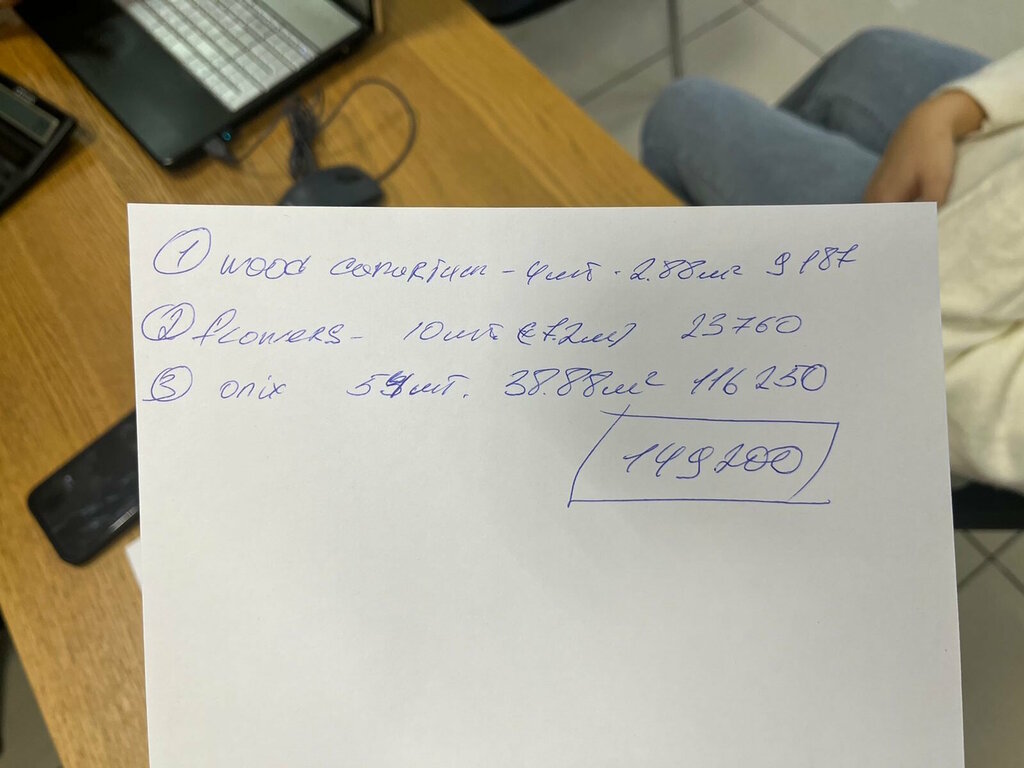 ① wood - 4шт. 2.88м² 9187
② flowers - 10шт (7.2м) 23760
③ onix 54шт. 38.88м² 116250
149200